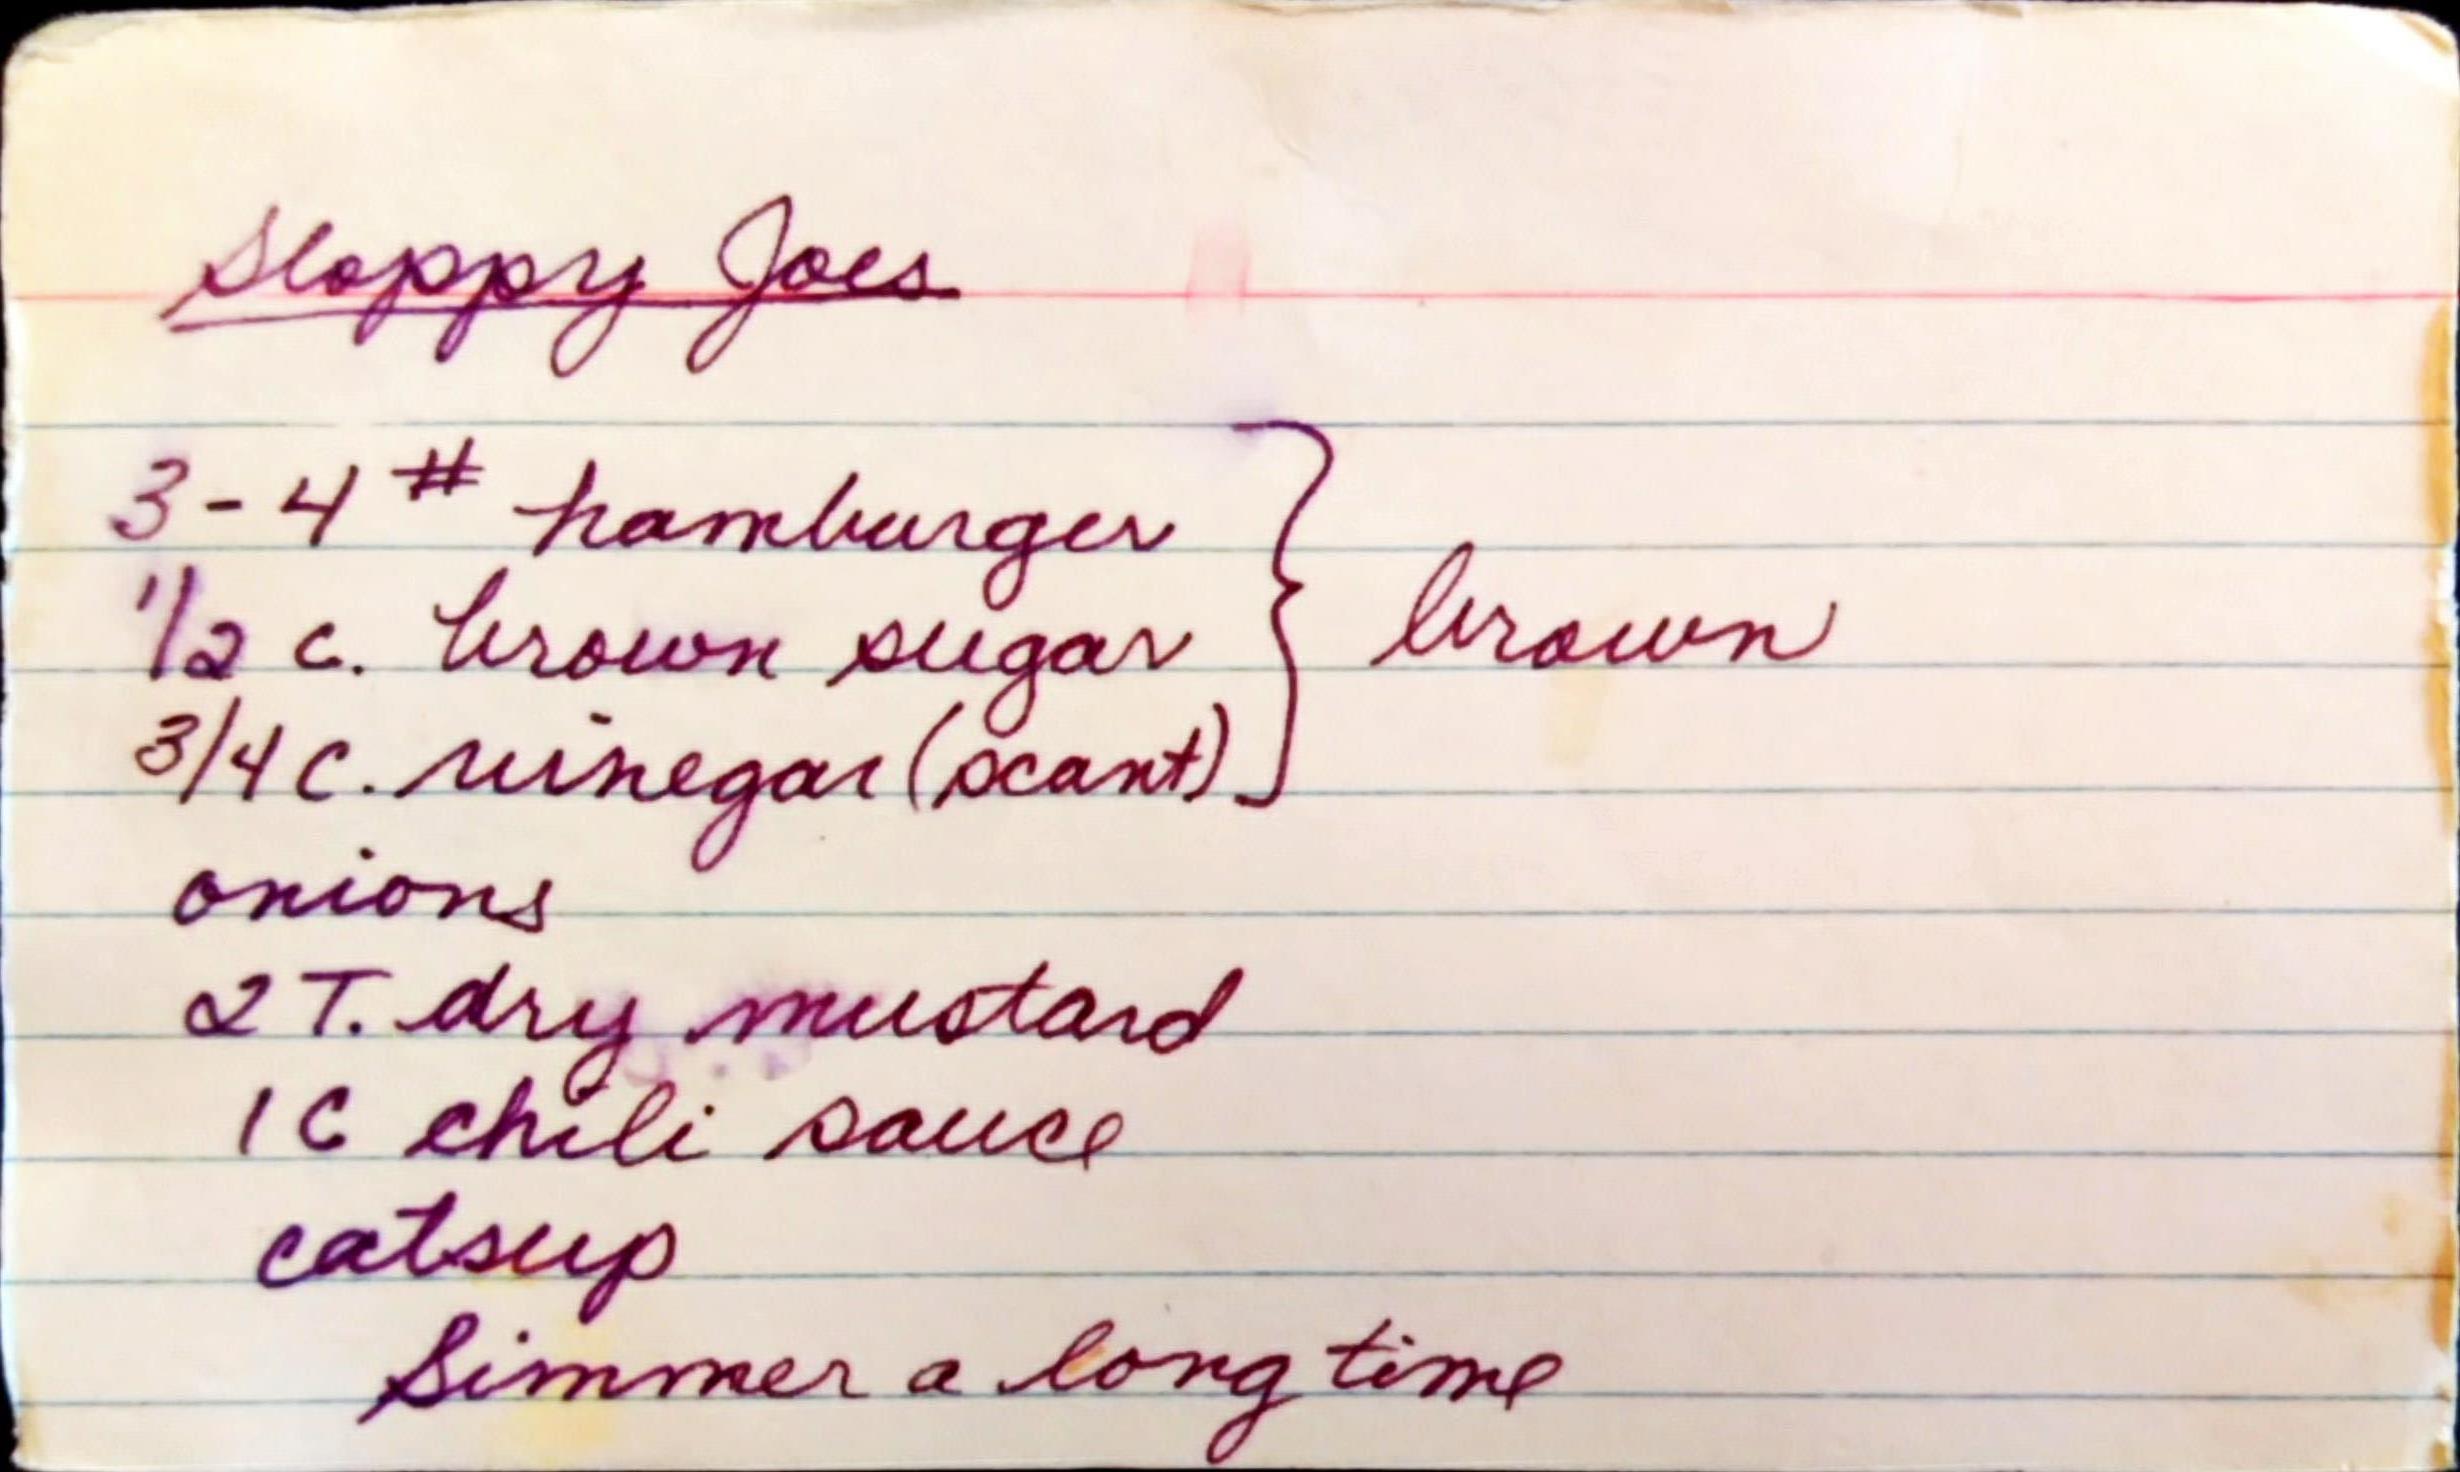 Sloppy Joes
3-4 # hamburger
1/2 c. brown sugar } brown
3/4 c. vinegar (scant)
onions
2 T. dry mustard
1 C chili sauce
catsup
Simmer a long time